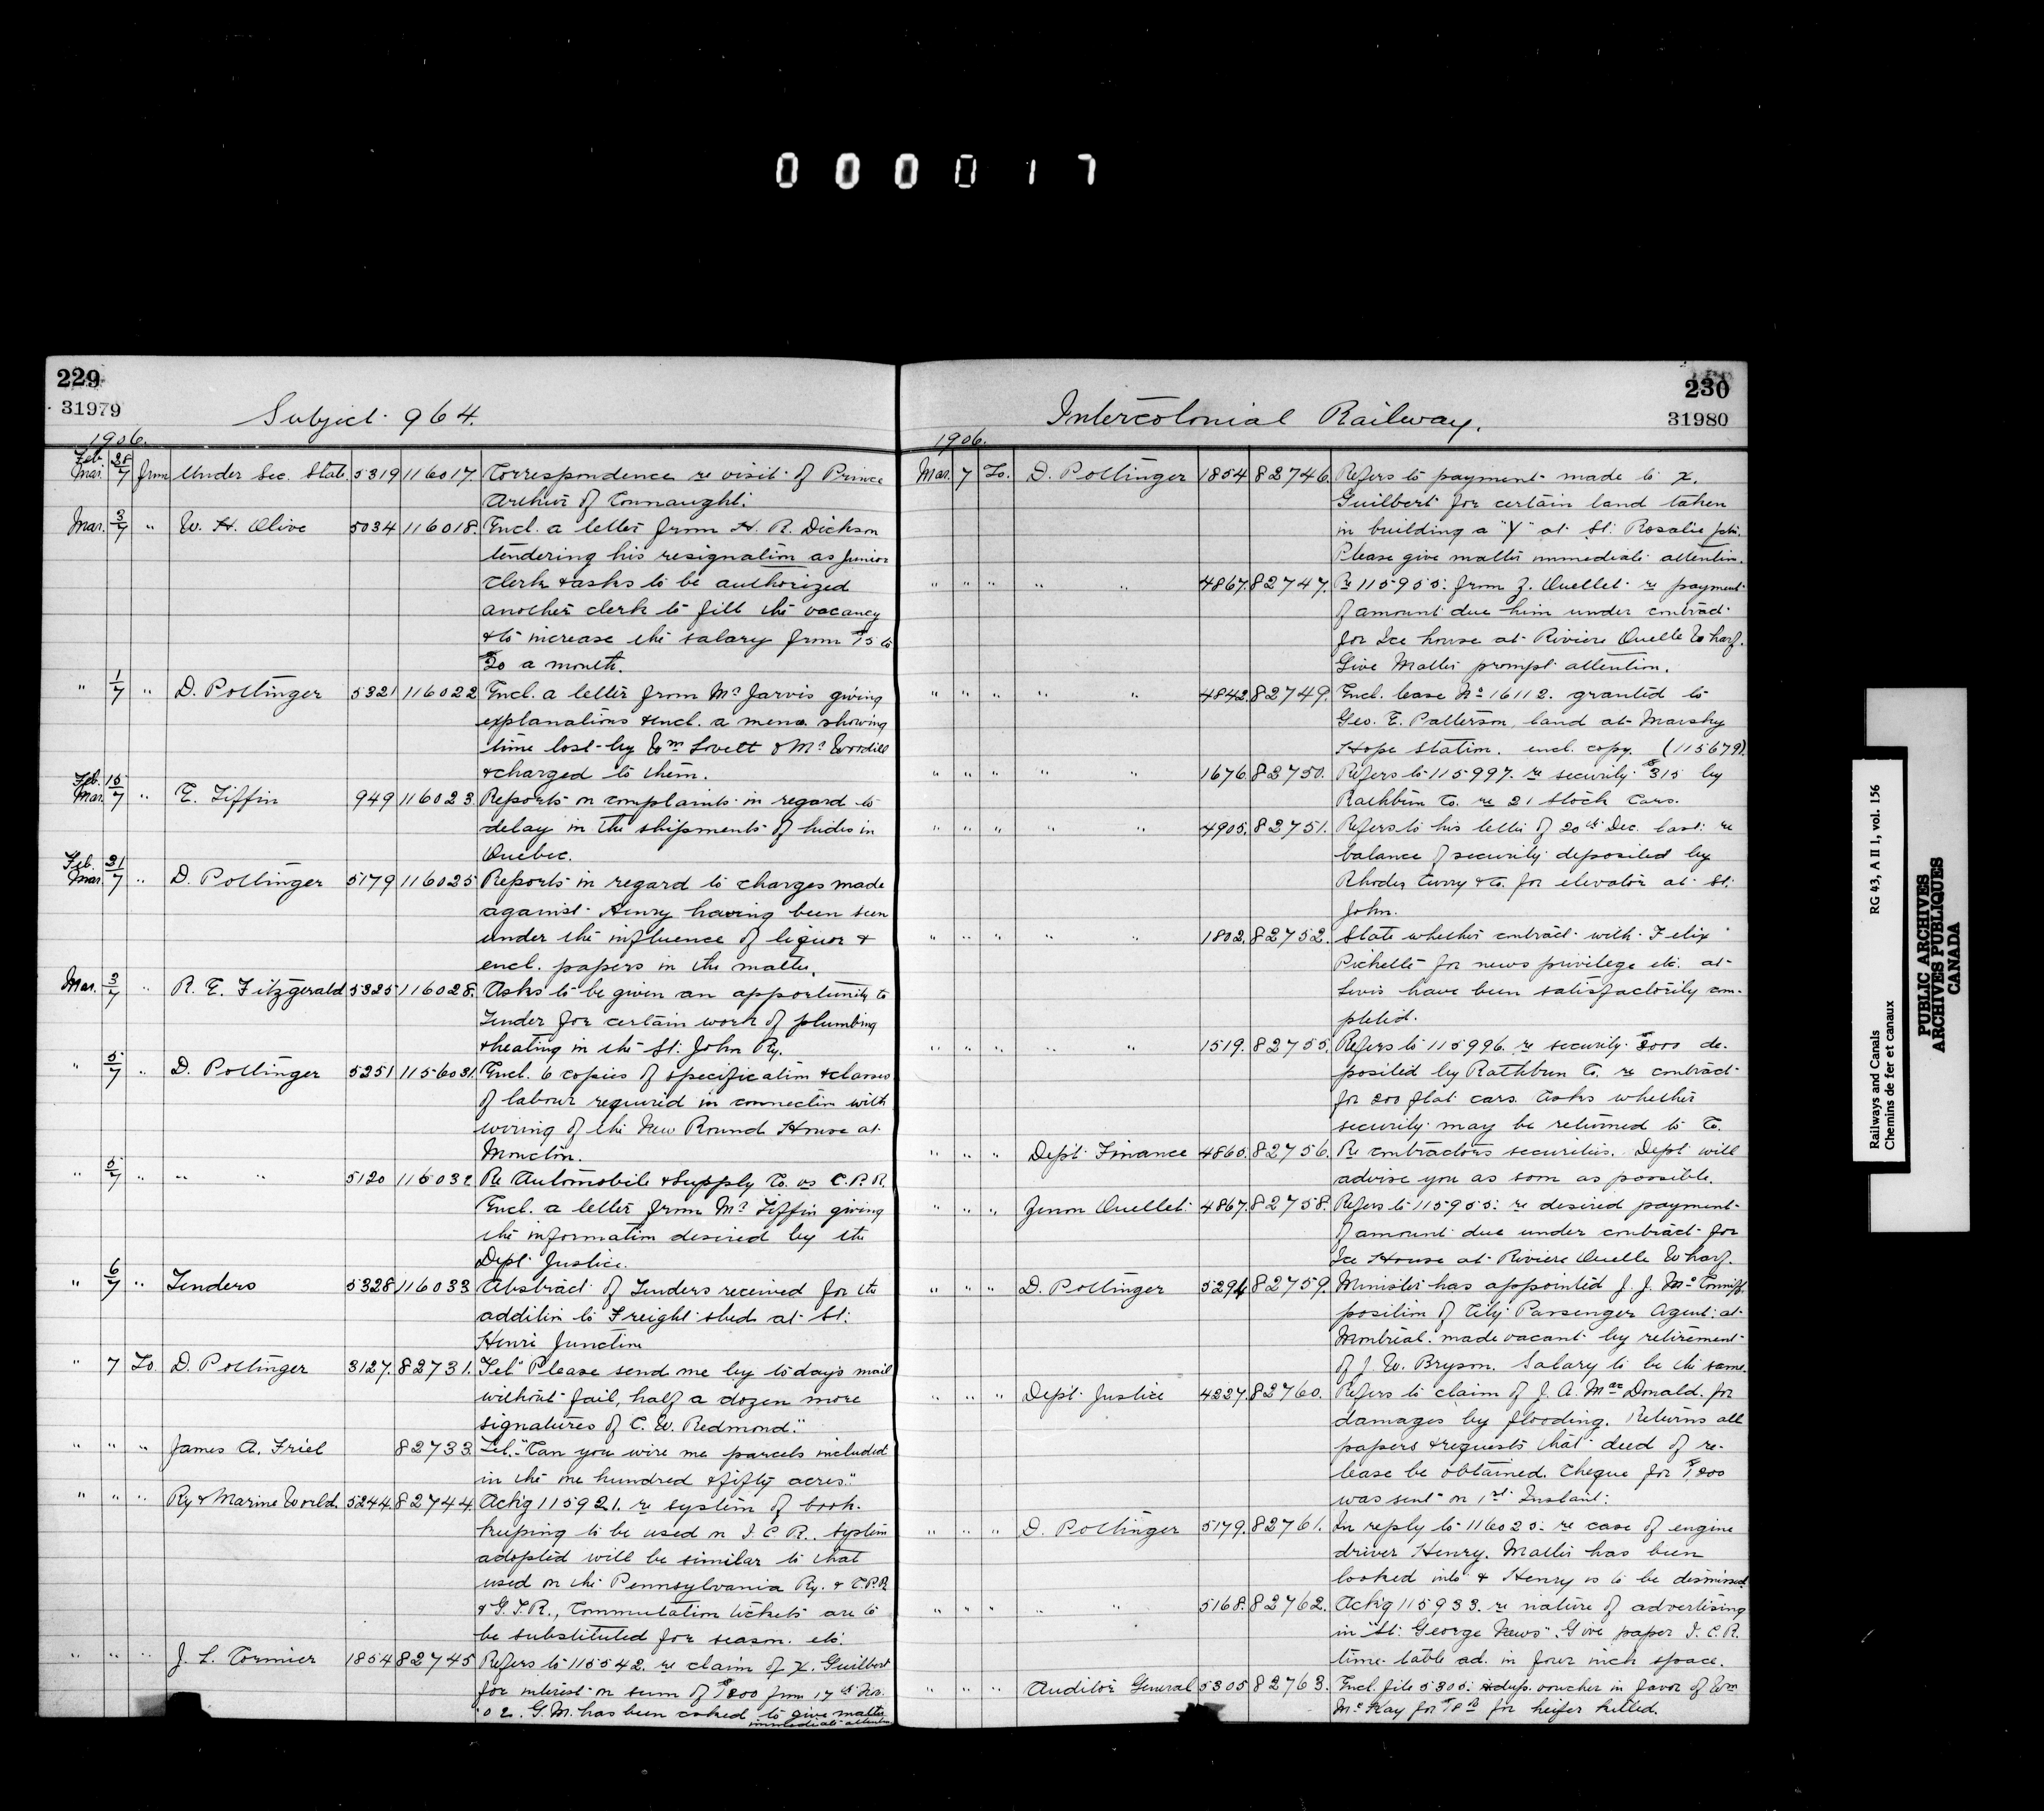 000017
229
31979
Subject 964.
1906.
Feb. 28
Mar. 7 from Under Sec. State. 5319 116017. Correspondence re visit of Prince
Arthur of Connaught.
Mar. 3/7 " W. H. Olive 5034 116018. Encl. a letter from H. R. Dickson
tendering his resignation as Junior
Clerk & asks to be authorized
another clerk to fill the vacancy
& to increase the salary from $15 to
$20 a month.
" 1/7 " D. Pottinger 5321 116022 Encl. a letter from Mr Jarvis giving
explanations & encl. a memo. showing
time lost by Wm Lovett & Mr Woodill
& charged to them.
Feb. 15
Mar. 7 " E. Tiffin 949 116023. Reports on complaints in regard to
delay in the shipments of hides in
Quebec.
Feb. 21
Mar. 7 " D. Pottinger 5179 116025 Reports in regard to charges made
against Henry having been seen
under the influence of liquor &
encl. papers in the matter.
Mar. 3/7 " R. E. Fitzgerald 5325 116028. Asks to be given an opportunity to
Tender for certain work of plumbing
& heating in the St. John Ry.
" 5/7 " D. Pottinger 5251 1156031. Encl. 6 copies of specification & classes
of labour required in connection with
wiring of the New Round House at
Moncton.
" 5/7 " " 5120 116032 Re Automobile & Supply Co. vs C.P.R.
Encl. a letter from Mr Tiffin giving
the information desired by the
Dept. Justice.
" 6/7 " Tenders 5328 116033 Abstract of Tenders received for the
addition to Freight shed at St.
Henri Junction
" 7 To. D. Pottinger 3127. 82731. Tel. "Please send me by to day's mail
without fail, half a dozen more
signatures of C. W. Redmond."
" " " James A. Friel 82733. Tel. "Can you wire me parcels included
in the one hundred & fifty acres."
" " " Ry & Marine World. 5244. 82744. Ack'g 115921. re system of book.
keeping to be used on I.C.R.. System
adopted will be similar to that
used on the Pennsylvania Ry. & C.P.R
& G.T.R., Commutation tickets are to
be substituted for season. etc.
" " " J. L. Cormier 1854 82745 Refers to 115542. re claim of X. Guilbert
for interest on sum of $1200 from 17th Nov.
'02. G.M. has been asked to give matter
immediate attention
230
31980
Intercolonial Railway.
1906.
Mar. 7 To. D. Pottinger 1854 82746. Refers to payment made to X.
Guilbert for certain land taken
in building a "Y" at St. Rosalie Jctn.
Please give matter immediate attention.
" " " " " 4867. 82747. Re 115955. from Z. Ouellet re payment
of amount due him under contract
for Ice house at Riviere Ouelle Wharf.
Give Matter prompt attention.
" " " " " 4842. 82749. Encl. lease No 16112. granted to
Geo. E. Patterson, land at Marshy
Hope station. encl. copy. (115679).
" " " " " 1676. 82750. Refers to 115997. re security $315 by
Rathbun Co. re 21 Stock Cars.
" " " " " 4905. 82751. Refers to his letter of 20th Dec. last re
balance of security deposited by
Rhodes Curry & Co. for elevator at St.
John.
" " " " " 1802. 82752. State whether contract with Felix
Pichette for news privilege etc. at
Levis have been satisfactorily com-
pleted.
" " " " " 1519. 82755. Refers to 115996. re security $2000 de-
posited by Rathbun Co. re contract
for 200 flat cars. Asks whether
security may be returned to Co.
" " " Dept. Finance 4865. 82756. Re contractors securities. Dept will
advise you as soon as possible.
" " " Zenon Ouellet. 4867. 82758. Refers to 115955. re desired payment
of amount due under contract for
Ice House at Riviere Ouelle Wharf.
" " " D. Pottinger 5294 82759. Minister has appointed J. J. McConniff
position of City Passenger Agent at
Montreal. made vacant by retirement
of J. W. Bryson. Salary to be the same.
" " " Dept. Justice 4227. 82760. Refers to claim of J. A. MacDonald. for
damages by flooding. Returns all
papers & requests that deed of re-
lease be obtained. Cheque for $1200
was sent on 1st Instant.
" " " D. Pottinger 5179. 82761. In reply to 116025. re case of engine
driver Henry. Matter has been
looked into & Henry is to be dismissed.
" " " " " 5168. 82762. Ack'g 115933. re nature of advertising
in "St. George News". Give paper I.C.R.
time-table ad. in four inch space.
" " " Auditor General 5305 82763. Encl. file 5305. & dup. voucher in favor of Wm
McKay for for heifer killed.
Railways and Canals RG 43, A II 1, vol. 156
Chemins de fer et canaux
PUBLIC ARCHIVES
ARCHIVES PUBLIQUES
CANADA